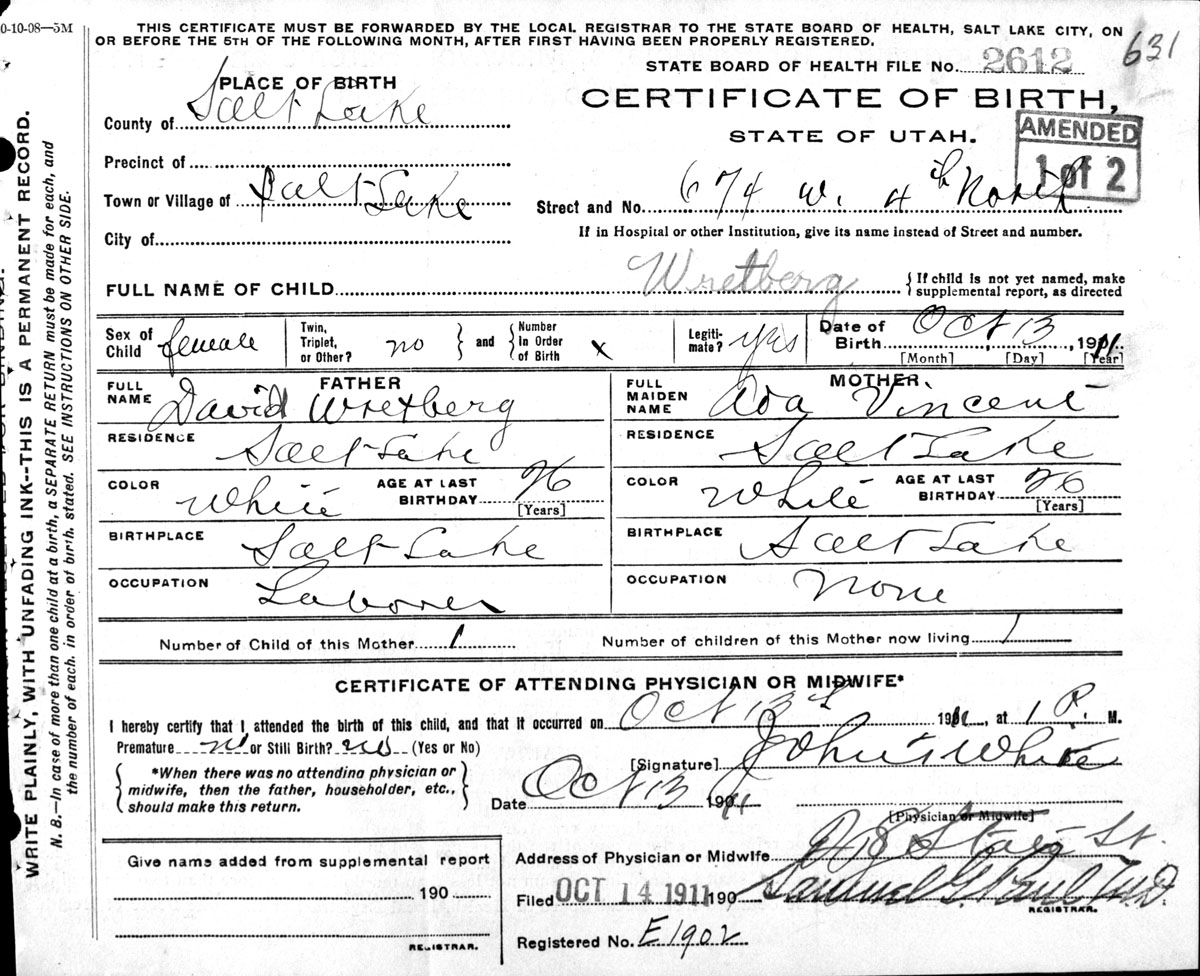 0-10-08—5M
THIS CERTIFICATE MUST BE FORWARDED BY THE LOCAL REGISTRAR TO THE STATE BOARD OF HEALTH, SALT LAKE CITY, ON
OR BEFORE THE 5TH OF THE FOLLOWING MONTH, AFTER FIRST HAVING BEEN PROPERLY REGISTERED.
631
STATE BOARD OF HEALTH FILE No. 2612
PLACE OF BIRTH
CERTIFICATE OF BIRTH,
STATE OF UTAH.
AMENDED
1 of 2
County of Salt Lake
Precinct of
Town or Village of Salt Lake
Street and No. 674 W. 4th North
City of
If in Hospital or other Institution, give its name instead of Street and number.
FULL NAME OF CHILD Wretberg
{If child is not yet named, make
supplemental report, as directed
Sex of Child female
Twin, Triplet, or Other? no } and { Number In Order of Birth x
Legiti-mate? yes
Date of Birth Oct 13, 1911
[Month] [Day] [Year]
FATHER
FULL NAME David Wretberg
RESIDENCE Salt Lake
COLOR White AGE AT LAST BIRTHDAY 26 [Years]
BIRTHPLACE Salt Lake
OCCUPATION Laborer
MOTHER
FULL MAIDEN NAME Ada Vincent
RESIDENCE Salt Lake
COLOR White AGE AT LAST BIRTHDAY 26 [Years]
BIRTHPLACE Salt Lake
OCCUPATION None
Number of Child of this Mother 1 Number of children of this Mother now living 1
CERTIFICATE OF ATTENDING PHYSICIAN OR MIDWIFE*
I hereby certify that I attended the birth of this child, and that it occurred on Oct 13th 1911, at 1 P. M.
Premature no or Still Birth? no (Yes or No)
{ *When there was no attending physician or
midwife, then the father, householder, etc.,
should make this return. }
[Signature] John S White
Date Oct 13 1911
[Physician or Midwife]
Address of Physician or Midwife State St.
Give name added from supplemental report
190
REGISTRAR.
Filed OCT 14 1911 190 Samuel G. Paul M.D.
REGISTRAR.
Registered No. E1902
WRITE PLAINLY, WITH UNFADING INK--THIS IS A PERMANENT RECORD.
N. B.—In case of more than one child at a birth, a SEPARATE RETURN must be made for each, and
the number of each, in order of birth, stated. SEE INSTRUCTIONS ON OTHER SIDE.